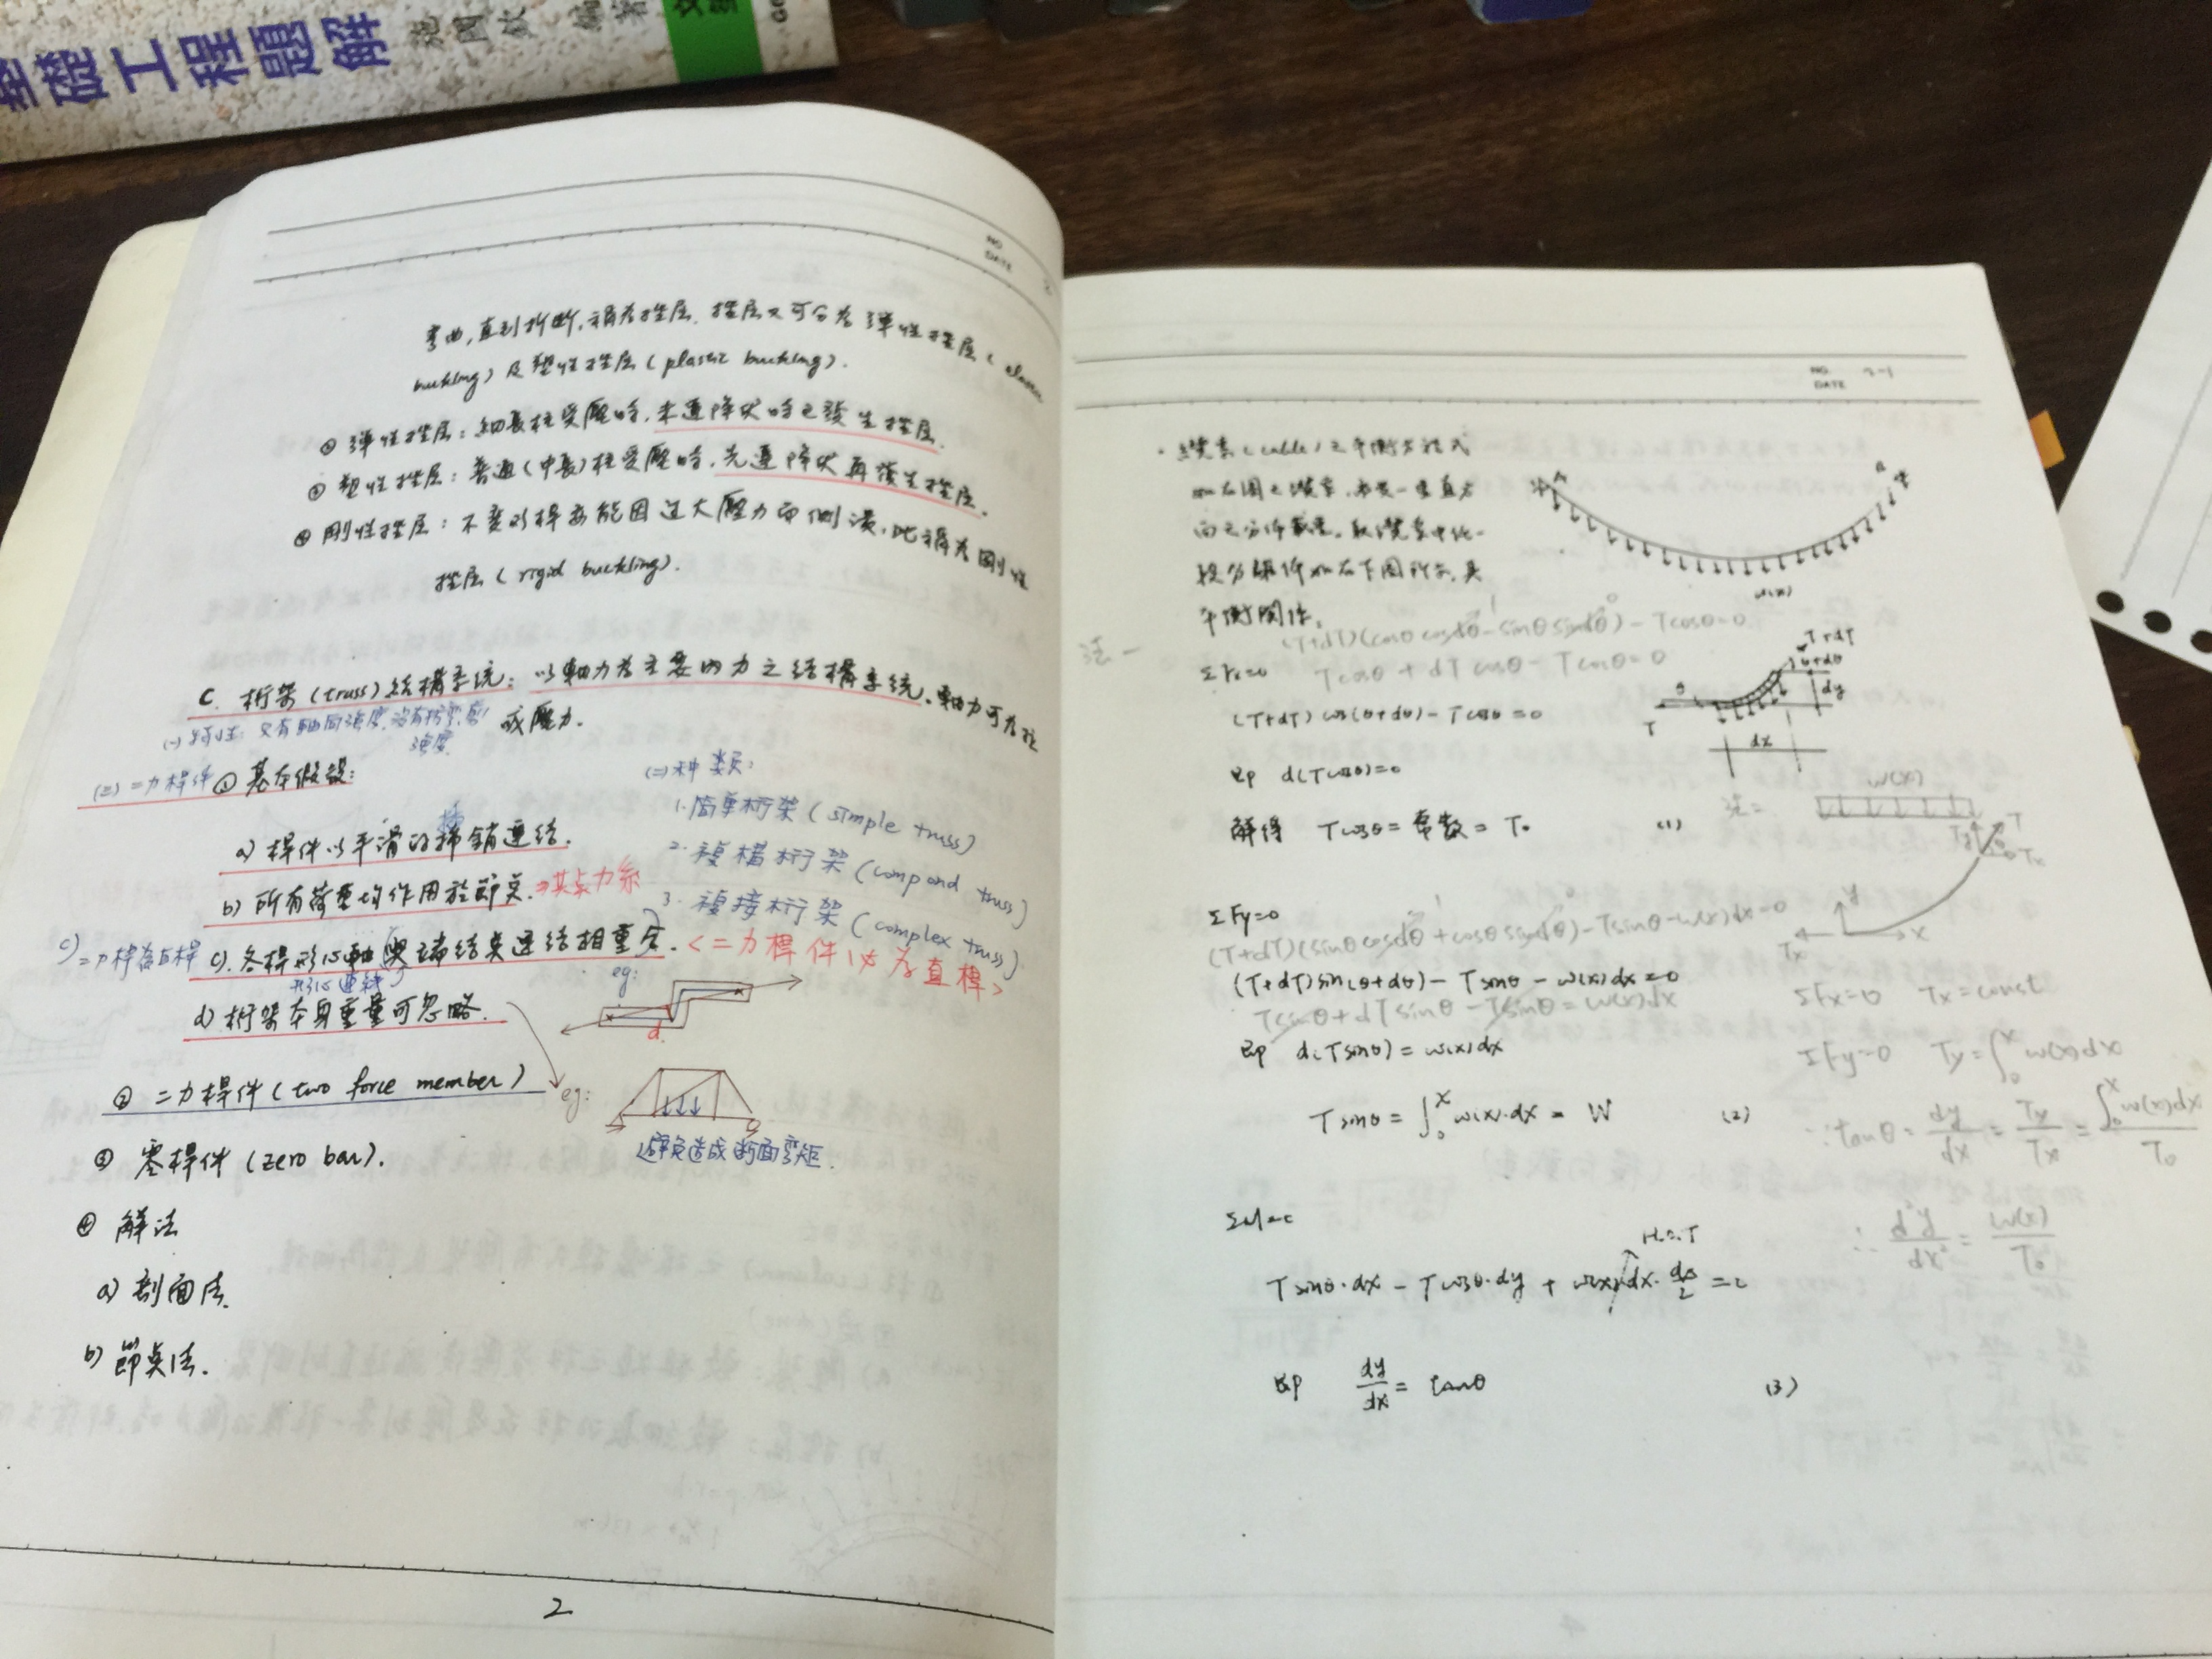 基礎工程題解
施國欽 編著
NO
DATE
彎曲,直到折斷,稱為挫屈.挫屈又可分為彈性挫屈(elastic
buckling)及塑性挫屈(plastic buckling).
彈性挫屈:細長柱受壓時,未達降伏時已發生挫屈.
塑性挫屈:普通(中長)柱受壓時,先達降伏再發生挫屈.
剛性挫屈:不變形桿亦能因過大壓力而側潰,此稱為剛性
挫屈(rigid buckling).
C. 桁架(truss)結構系統:以軸力為主要內力之結構系統,軸力可為拉
(一)特性:只有軸向強度,沒有抗彎、剪
強度
或壓力.
(三)二力桿件 ① 基本假設:
(二)種類:
1.簡單桁架(simple truss)
2.複構桁架(compond truss)
3.複接桁架(complex truss)
a)桿件以平滑的插銷連結.
b)所有荷重均作用於節点.⇒共点力系
c)二力桿為直桿
c).各桿形心軸與端結点連結相重合.<二力桿件必為直桿>
形心連線
eg:
d
d)桁架本身重量可忽略.
② 二力桿件(two force member)
eg:
避免造成斷面彎矩.
③ 零桿件(zero bar).
④ 解法
a)剖面法.
b)節点法.
2
NO. 2-1
DATE
·纜索(cable)之平衡方程式
如右圖之纜索,承受一垂直方
向之分佈載重,取纜索中任一
段分離体如右下圖所示,其
平衡關係.
A
B
w(x)
法一
(T+dT)(cosθ cosdθ - sinθ sindθ) - Tcosθ=0
1
0
ΣFx=0
Tcosθ + dT cosθ - Tcosθ = 0
(T+dT) cos(θ+dθ) - T cosθ = 0
即 d(Tcosθ)=0
解得 Tcosθ = 常數 = T₀ (1)
T+dT
θ+dθ
dy
θ
T
dx
法二
w(x)
T
Ty
θ
Tx
y
x
Tx
ΣFy=0
1
0
(T+dT)(sinθ cosdθ + cosθ sindθ) - Tsinθ - w(x)dx=0
(T+dT)sin(θ+dθ) - Tsinθ - w(x)dx=0
Tsinθ + dTsinθ - Tsinθ = w(x)dx
即 d(Tsinθ) = w(x)dx
Tsinθ = ∫₀ˣ w(x)·dx = W (2)
ΣFx=0 Tx=const
ΣFy=0 Ty=∫₀ˣ w(x)dx
∵tanθ = dy/dx = Ty/Tx = ∫₀ˣ w(x)dx / T₀
∴ d²y/dx² = w(x)/T₀
ΣM=0
H.O.T
Tsinθ·dx - Tcosθ·dy + w(x)dx·dx/2 = 0
即 dy/dx = tanθ (3)